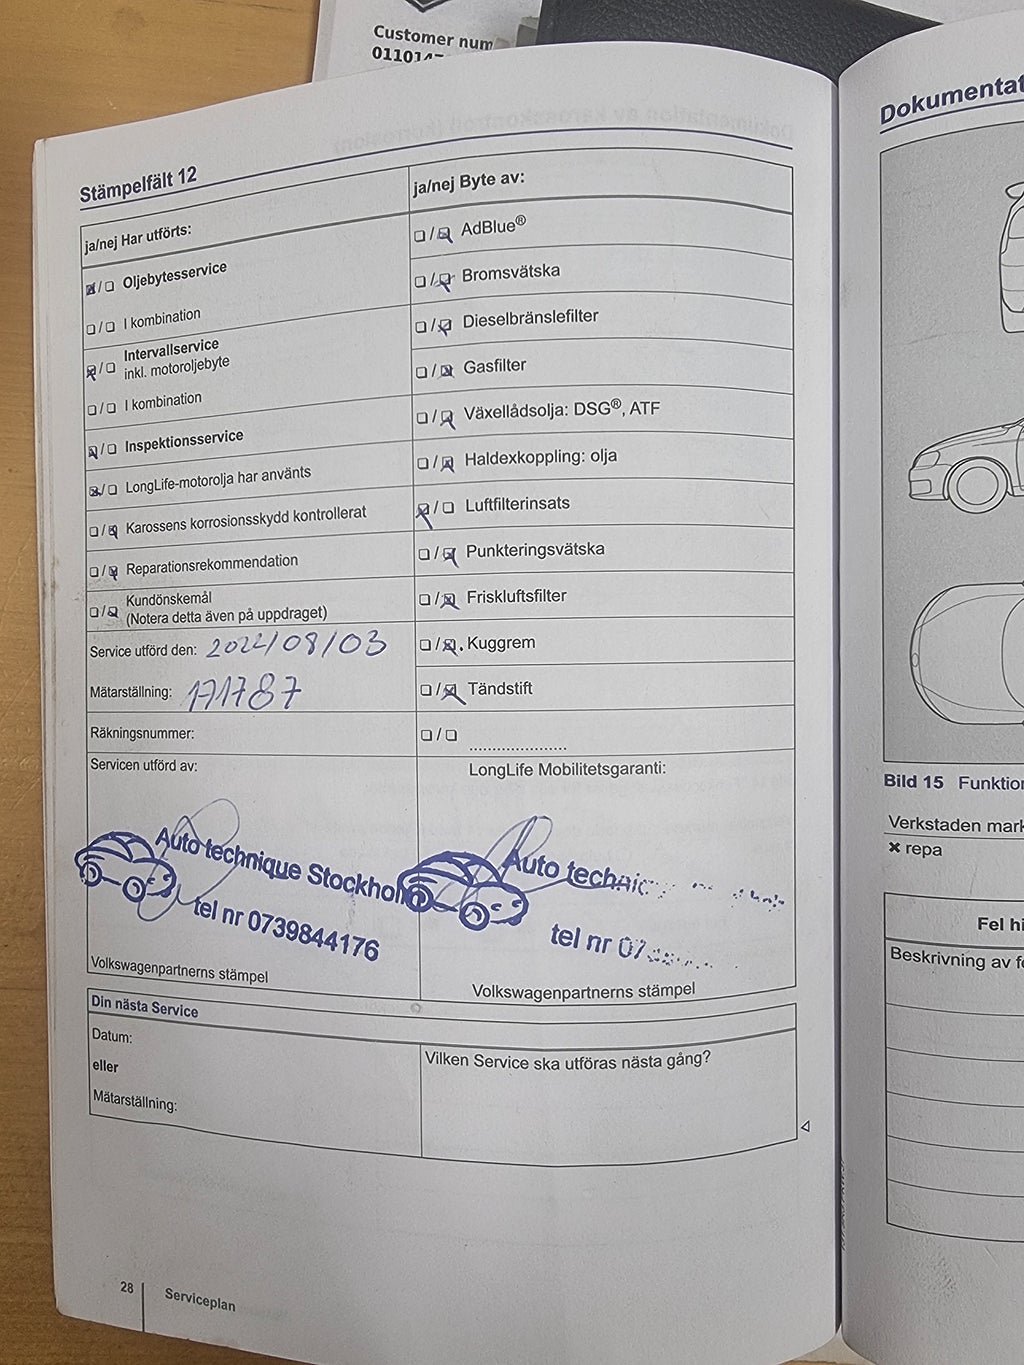 Customer num
011014
Stämpelfält 12
ja/nej Har utförts:
Oljebytesservice
I kombination
Intervallservice
inkl. motoroljebyte
I kombination
Inspektionsservice
LongLife-motorolja har använts
Karossens korrosionsskydd kontrollerat
Reparationsrekommendation
Kundönskemål
(Notera detta även på uppdraget)
Service utförd den: 2022/08/03
Mätarställning: 171787
Räkningsnummer:
Servicen utförd av:
Auto technique Stockholm
tel nr 0739844176
Volkswagenpartnerns stämpel
ja/nej Byte av:
AdBlue®
Bromsvätska
Dieselbränslefilter
Gasfilter
Växellådsolja: DSG®, ATF
Haldexkoppling: olja
Luftfilterinsats
Punkteringsvätska
Friskluftsfilter
Kuggrem
Tändstift
LongLife Mobilitetsgaranti:
Auto technic
tel nr 07
Volkswagenpartnerns stämpel
Din nästa Service
Datum:
eller
Mätarställning:
Vilken Service ska utföras nästa gång?
28 Serviceplan
Dokumentat
Bild 15 Funktion
Verkstaden mark
✖ repa
Fel hi
Beskrivning av fe